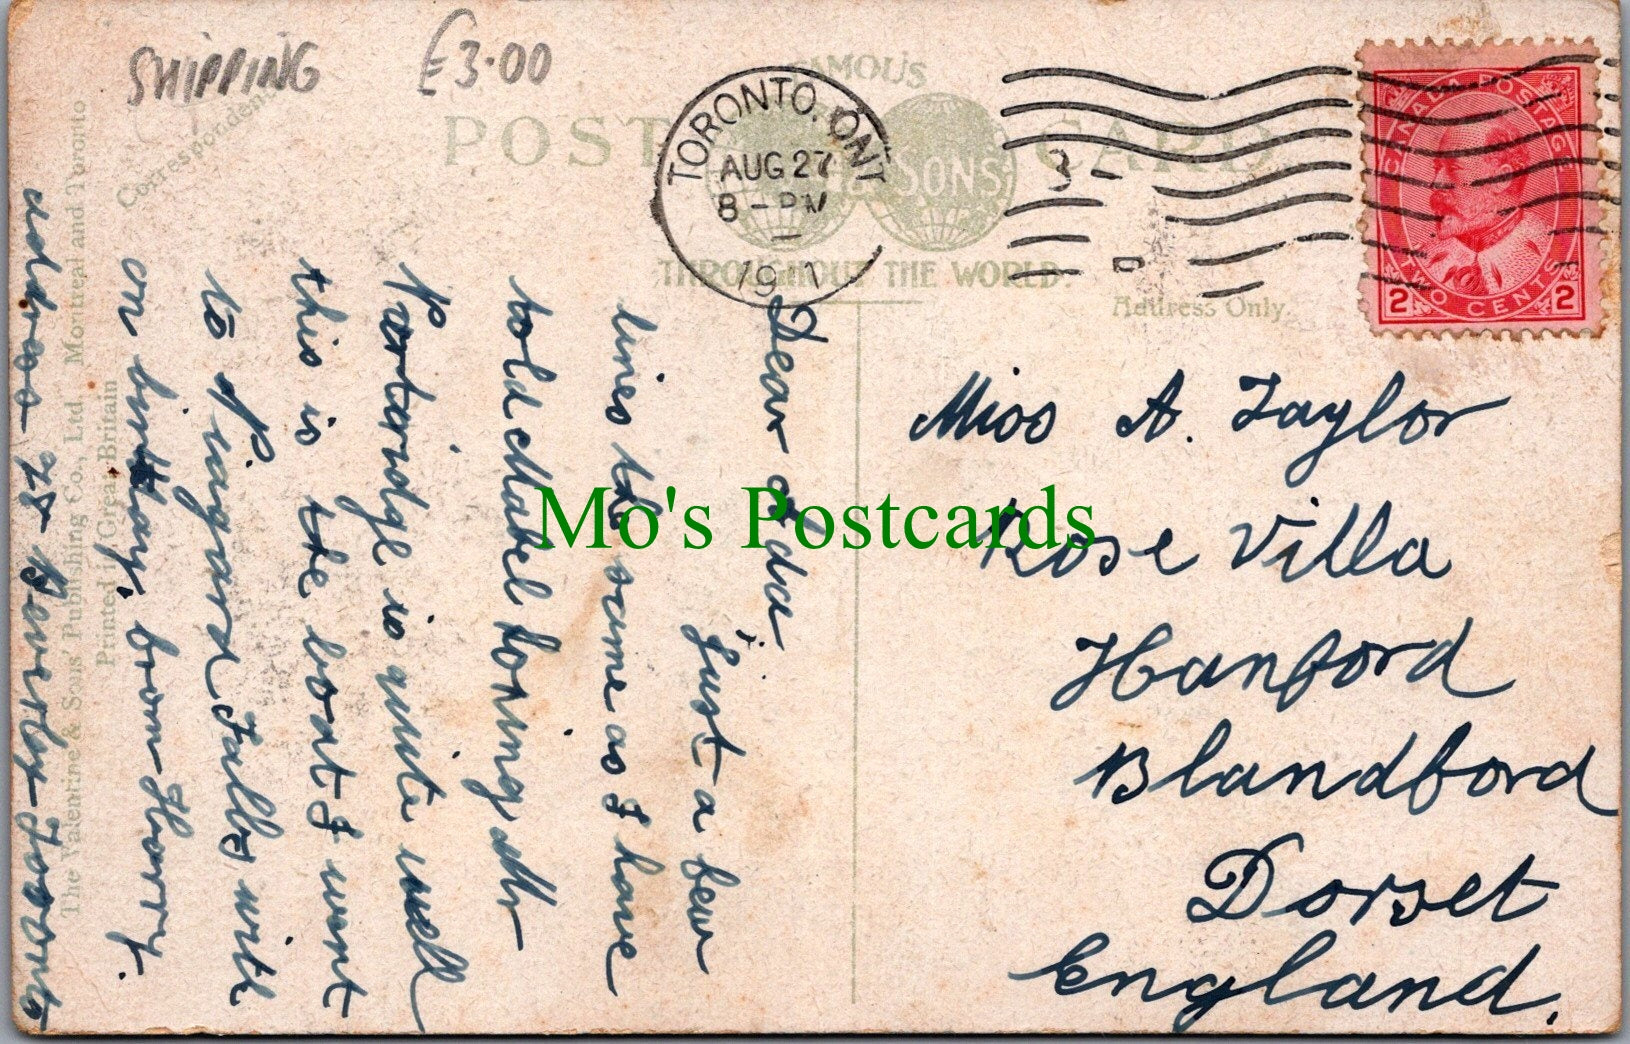 SHIPPING £3.00
FAMOUS
POST CARD
SONS
THROUGHOUT THE WORLD.
Correspondence
Address Only.
TORONTO. ONT
AUG 27
8 - PM
CANADA POSTAGE
TWO CENTS
2 2
Dear
Just a few
lines the same as I have
told Mabel
Partridge is quite well
this is the boat I went
to Niagara Falls with
on birthday, from Harry.
address 75 Beverly Toronto
Miss A. Taylor
Rose Villa
Hanford
Blandford
Dorset
England.
The Valentine & Sons' Publishing Co., Ltd. Montreal and Toronto
Printed in Great Britain
Mo's Postcards